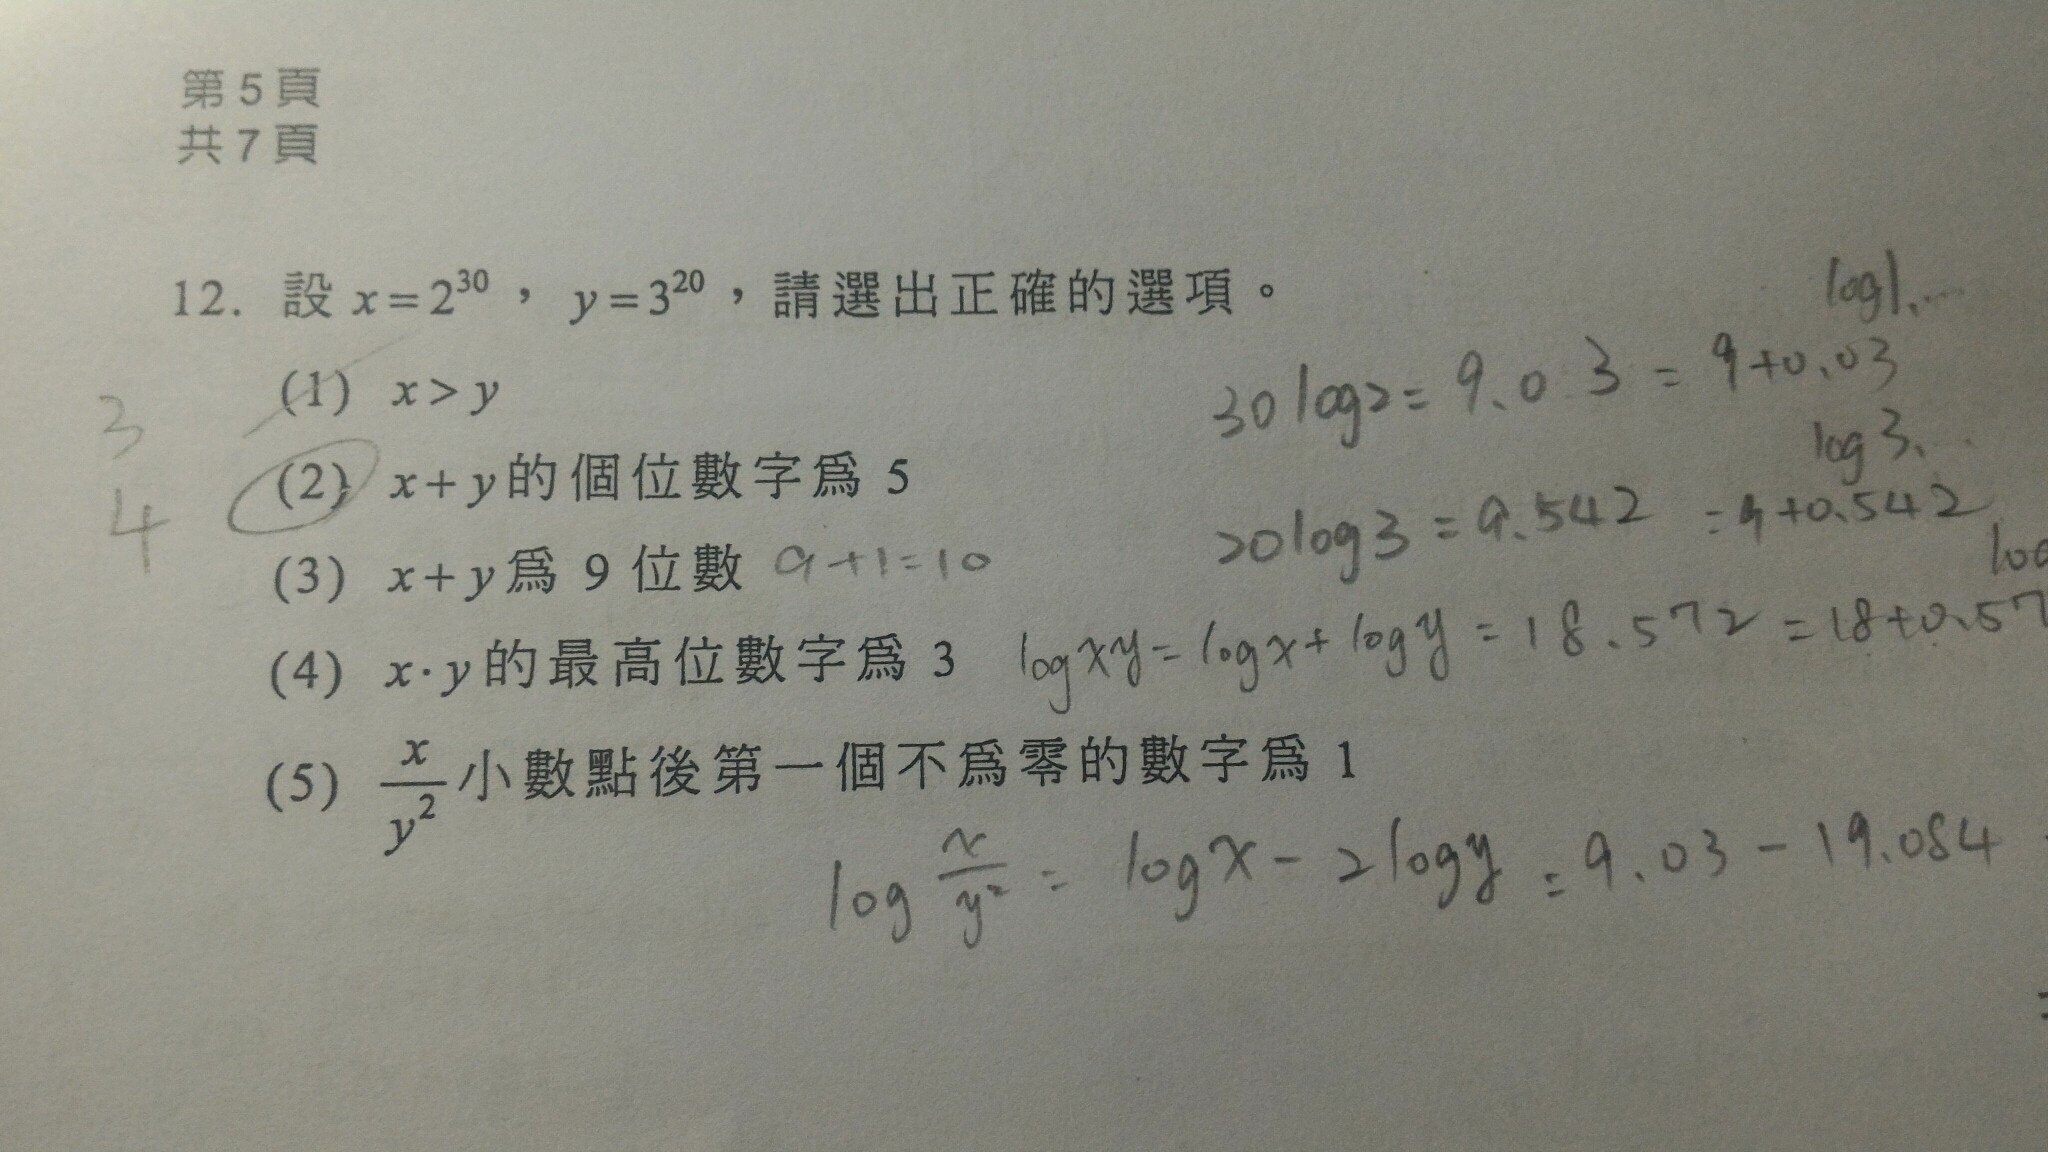 第5頁
共7頁
12. 設 x=2^30，y=3^20，請選出正確的選項。
log1.…
(1) x>y
30log2=9.03=9+0.03
3
log3.…
(2) x+y的個位數字爲 5
20log3=9.542=9+0.542
4
(3) x+y爲 9 位數 9+1=10
(4) x·y的最高位數字爲 3 logxy=logx+logy=18.572=18+0.57
(5) x/y^2 小數點後第一個不爲零的數字爲 1
log x/y^2 = logx-2logy=9.03-19.084
=